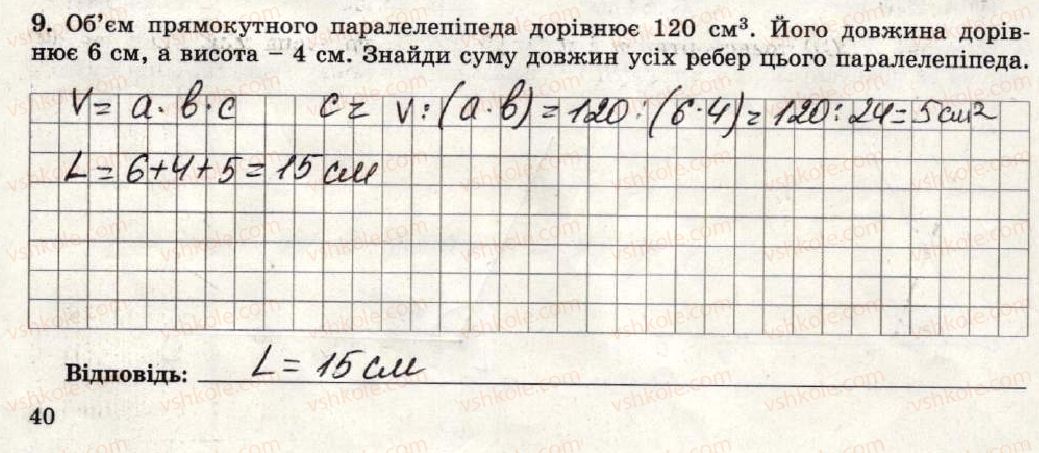 9. Об’єм прямокутного паралелепіпеда дорівнює 120 см³. Його довжина дорів-
нює 6 см, а висота – 4 см. Знайди суму довжин усіх ребер цього паралелепіпеда.
V = a · b · c c = V : (a · b) = 120 : (6 · 4) = 120 : 24 = 5 см²
L = 6 + 4 + 5 = 15 см
Відповідь: L = 15 см
40